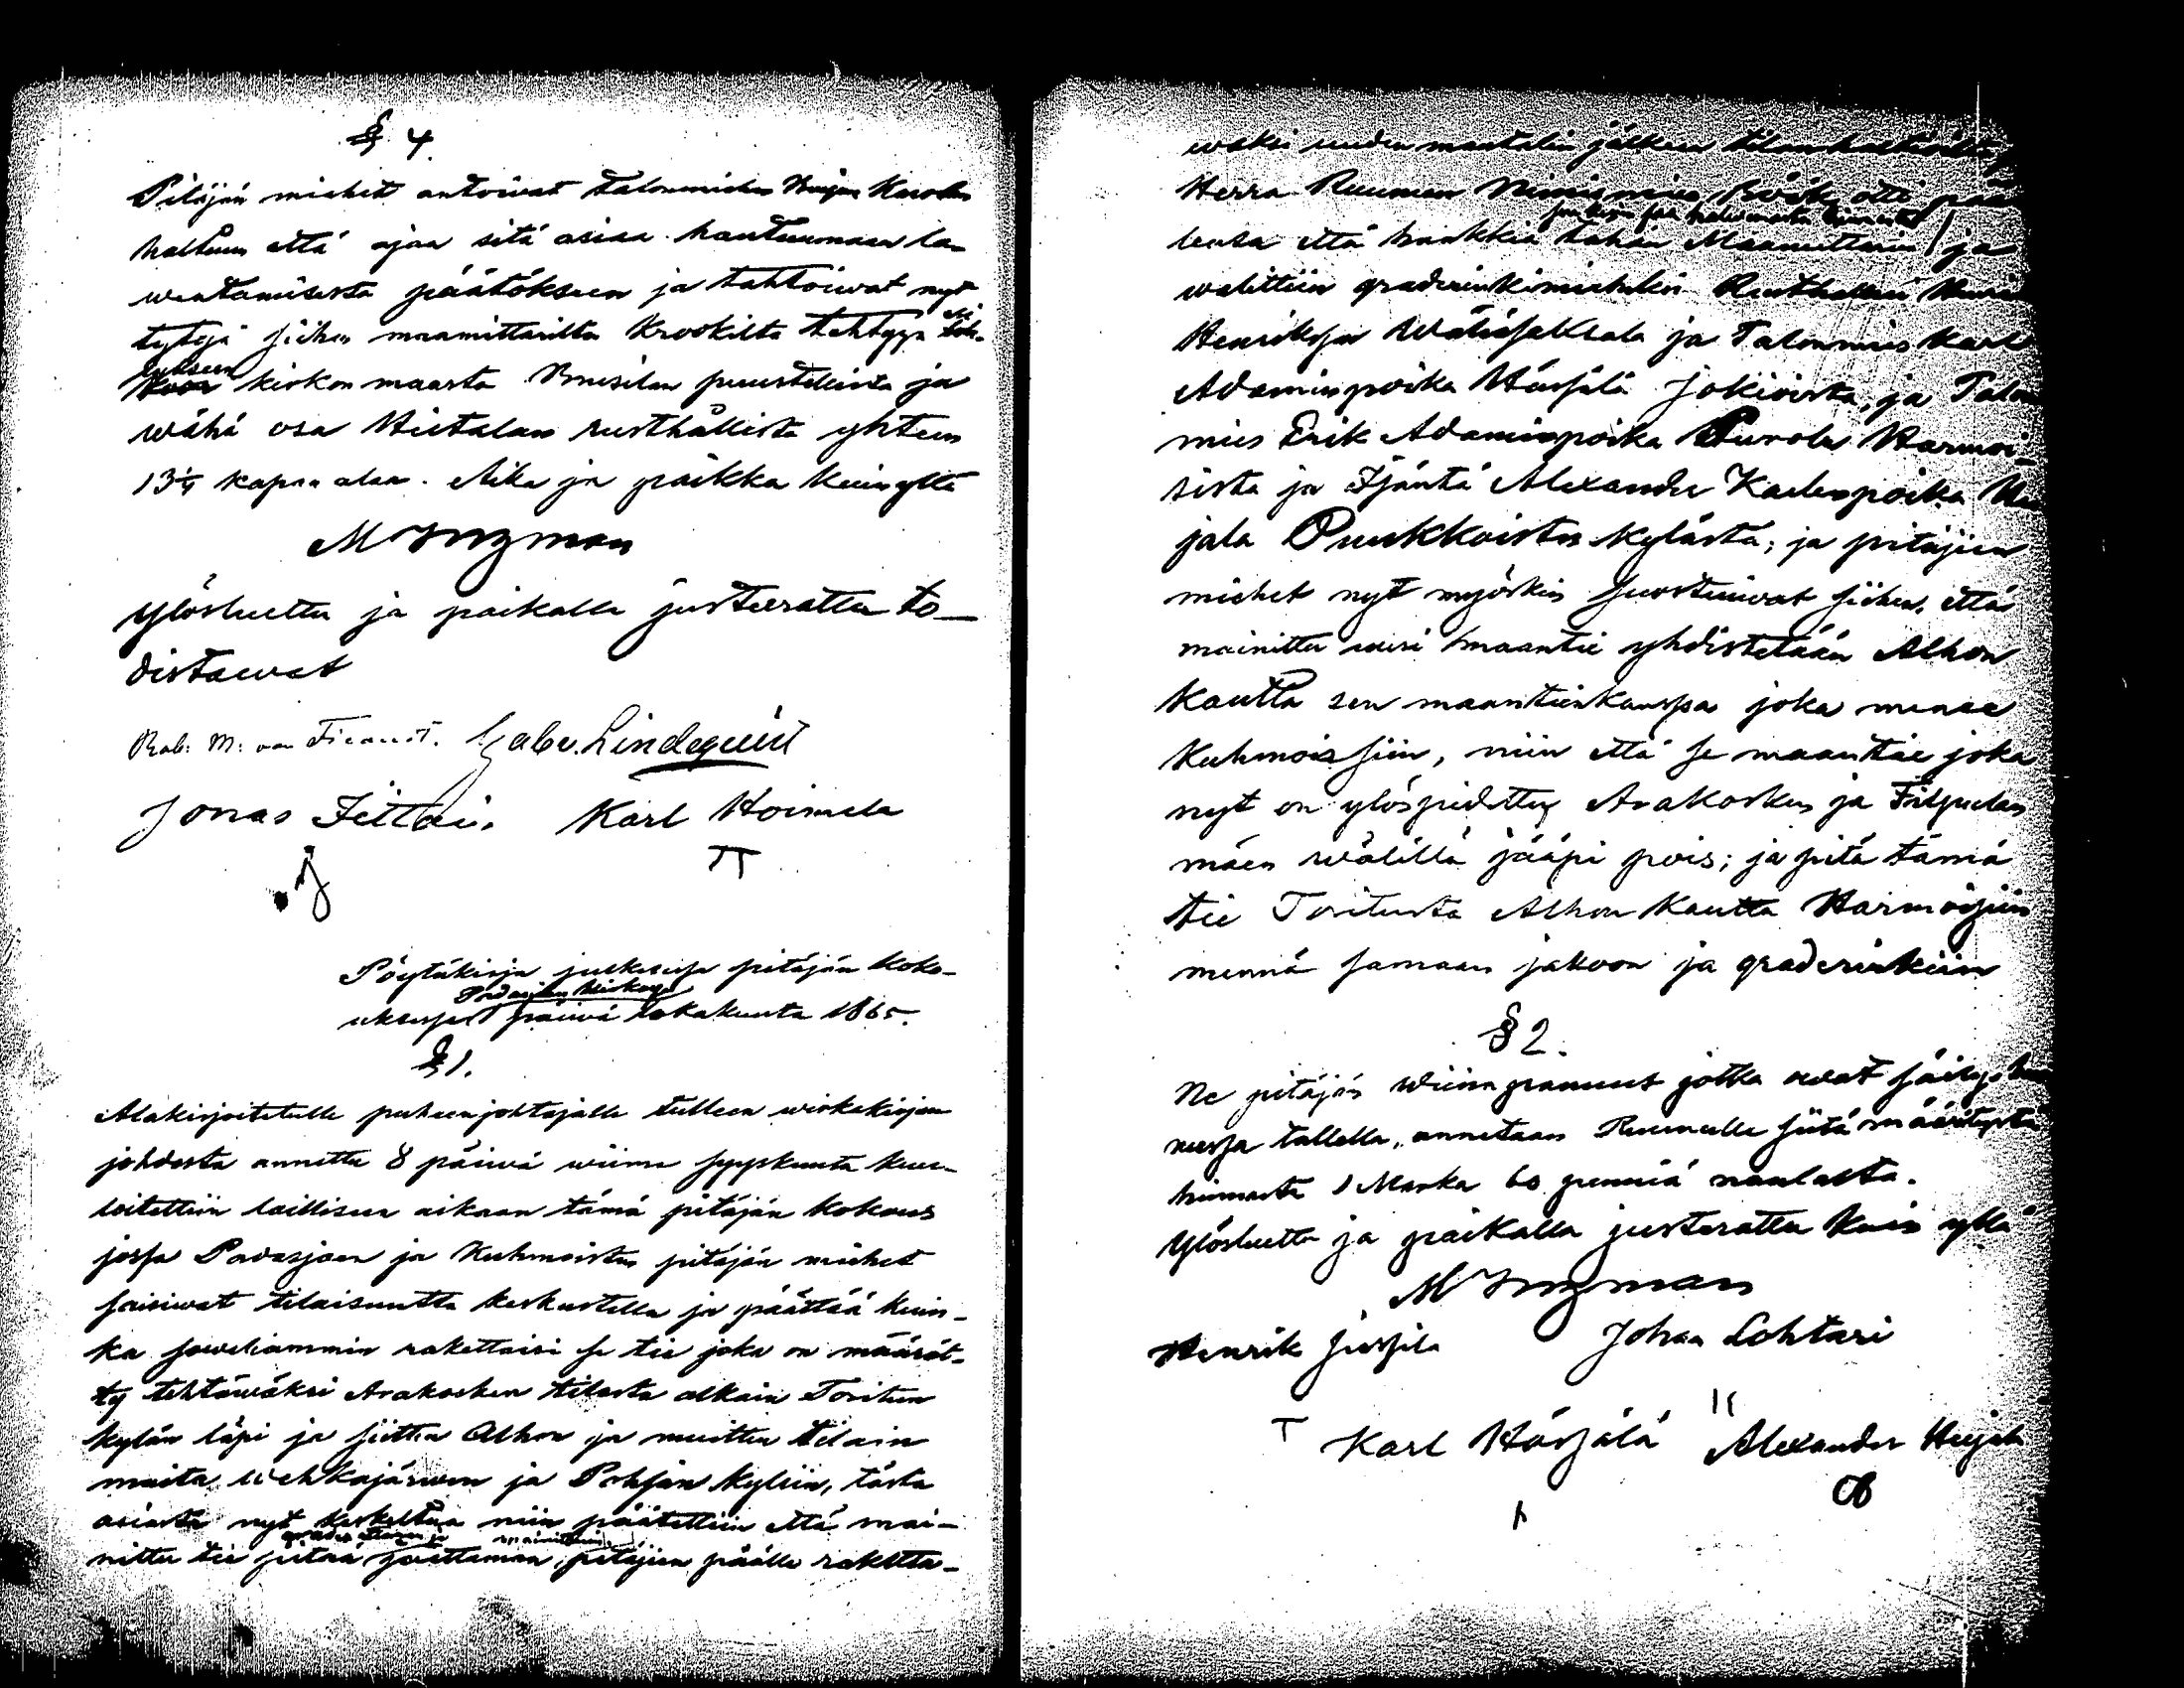 § 4.
Pitäjän miehet antoivat talonmiehen Karolus
haltuun että ajaa sitä asiaa hautuumaan la-
wentamisesta päätökseen ja tahtoiwat nyt
tytyjä siihen maamittarilta Krookilta tehtyyn
kirkon maasta puustellista ja
wähä osa Hietalan rusthållista yhteen
13¼ kapan alaa. Aika ja paikka kuin yltä
M Ingman
Ylösluettu ja paikalla justeerattu to-
distawat
Gabr. Lindequist
Jonas Karl Hoimela
Pöytäkirja julkisessa pitäjän koko-
Padasjoen kirkossa
uksessa 1 päivä lokakuuta 1865.
§ 1.
Alakirjoitetulle puheenjohtajalle tulleen wirkakirjan
johdosta annettu 8 päivä wiime syyskuuta kuu-
loitettiin lailliseen aikaan tämä pitäjän kokous
jossa Padasjoen ja Kuhmoisten pitäjän miehet
saisiwat tilaisuutta keskustella ja päättää kuin-
ka soweliammin rakettaisi se tie joka on määrät-
ty tehtäwäksi Arakosken tilasta alkain Toritun
kylän läpi ja siitten Alhon ja muitten tilain
maita Wehkajärwen ja Pohjan kyliin, tästä
asiasta nyt keskeltua niin päätettiin että mai-
mainittuin
nittu tie pitää pitäjien päälle raketta-
waksi uuden mantalin jälkeen
Herra Ruunun Nimismies Böök otti pää
leusa että hankkia tähän Maamittarin ja
walittiin graderinkimieheksi Rusthollari
Henrikssa ja Talonmies Karl
Adaminpoika Härjälä Jokioista, ja Talon
mies Erik Adaminpoika Purola Harmoi-
sista ja Isäntä Alexander Kaalenpoika
jala Puukkoisten kylästä; ja pitäjien
miehet nyt myöskin suostuiwat siihen, että
mainittu uusi maantie yhdistetään Alhon
kautta sen maantienkanssa joka menee
Kuhmoissiin, niin että se maantie joka
nyt on ylöspidetty Arakosken ja
mäen wälillä jääpi pois; ja pitä tämä
tie Toritusta Alhon kautta Harmoisiin
mennä samaan jakoon ja graderinkiin
§ 2.
Ne pitäjän wiinapannut jotka owat
nussa tallella, annetaan Ruunulle siitä määrätystä
hinnasta 1 Marka 60 penniä naulasta.
Ylösluettu ja paikalla justerattu kuin yllä
M Ingman
Henrik Johan Lohtari
Karl Härjälä Alexander Heijala